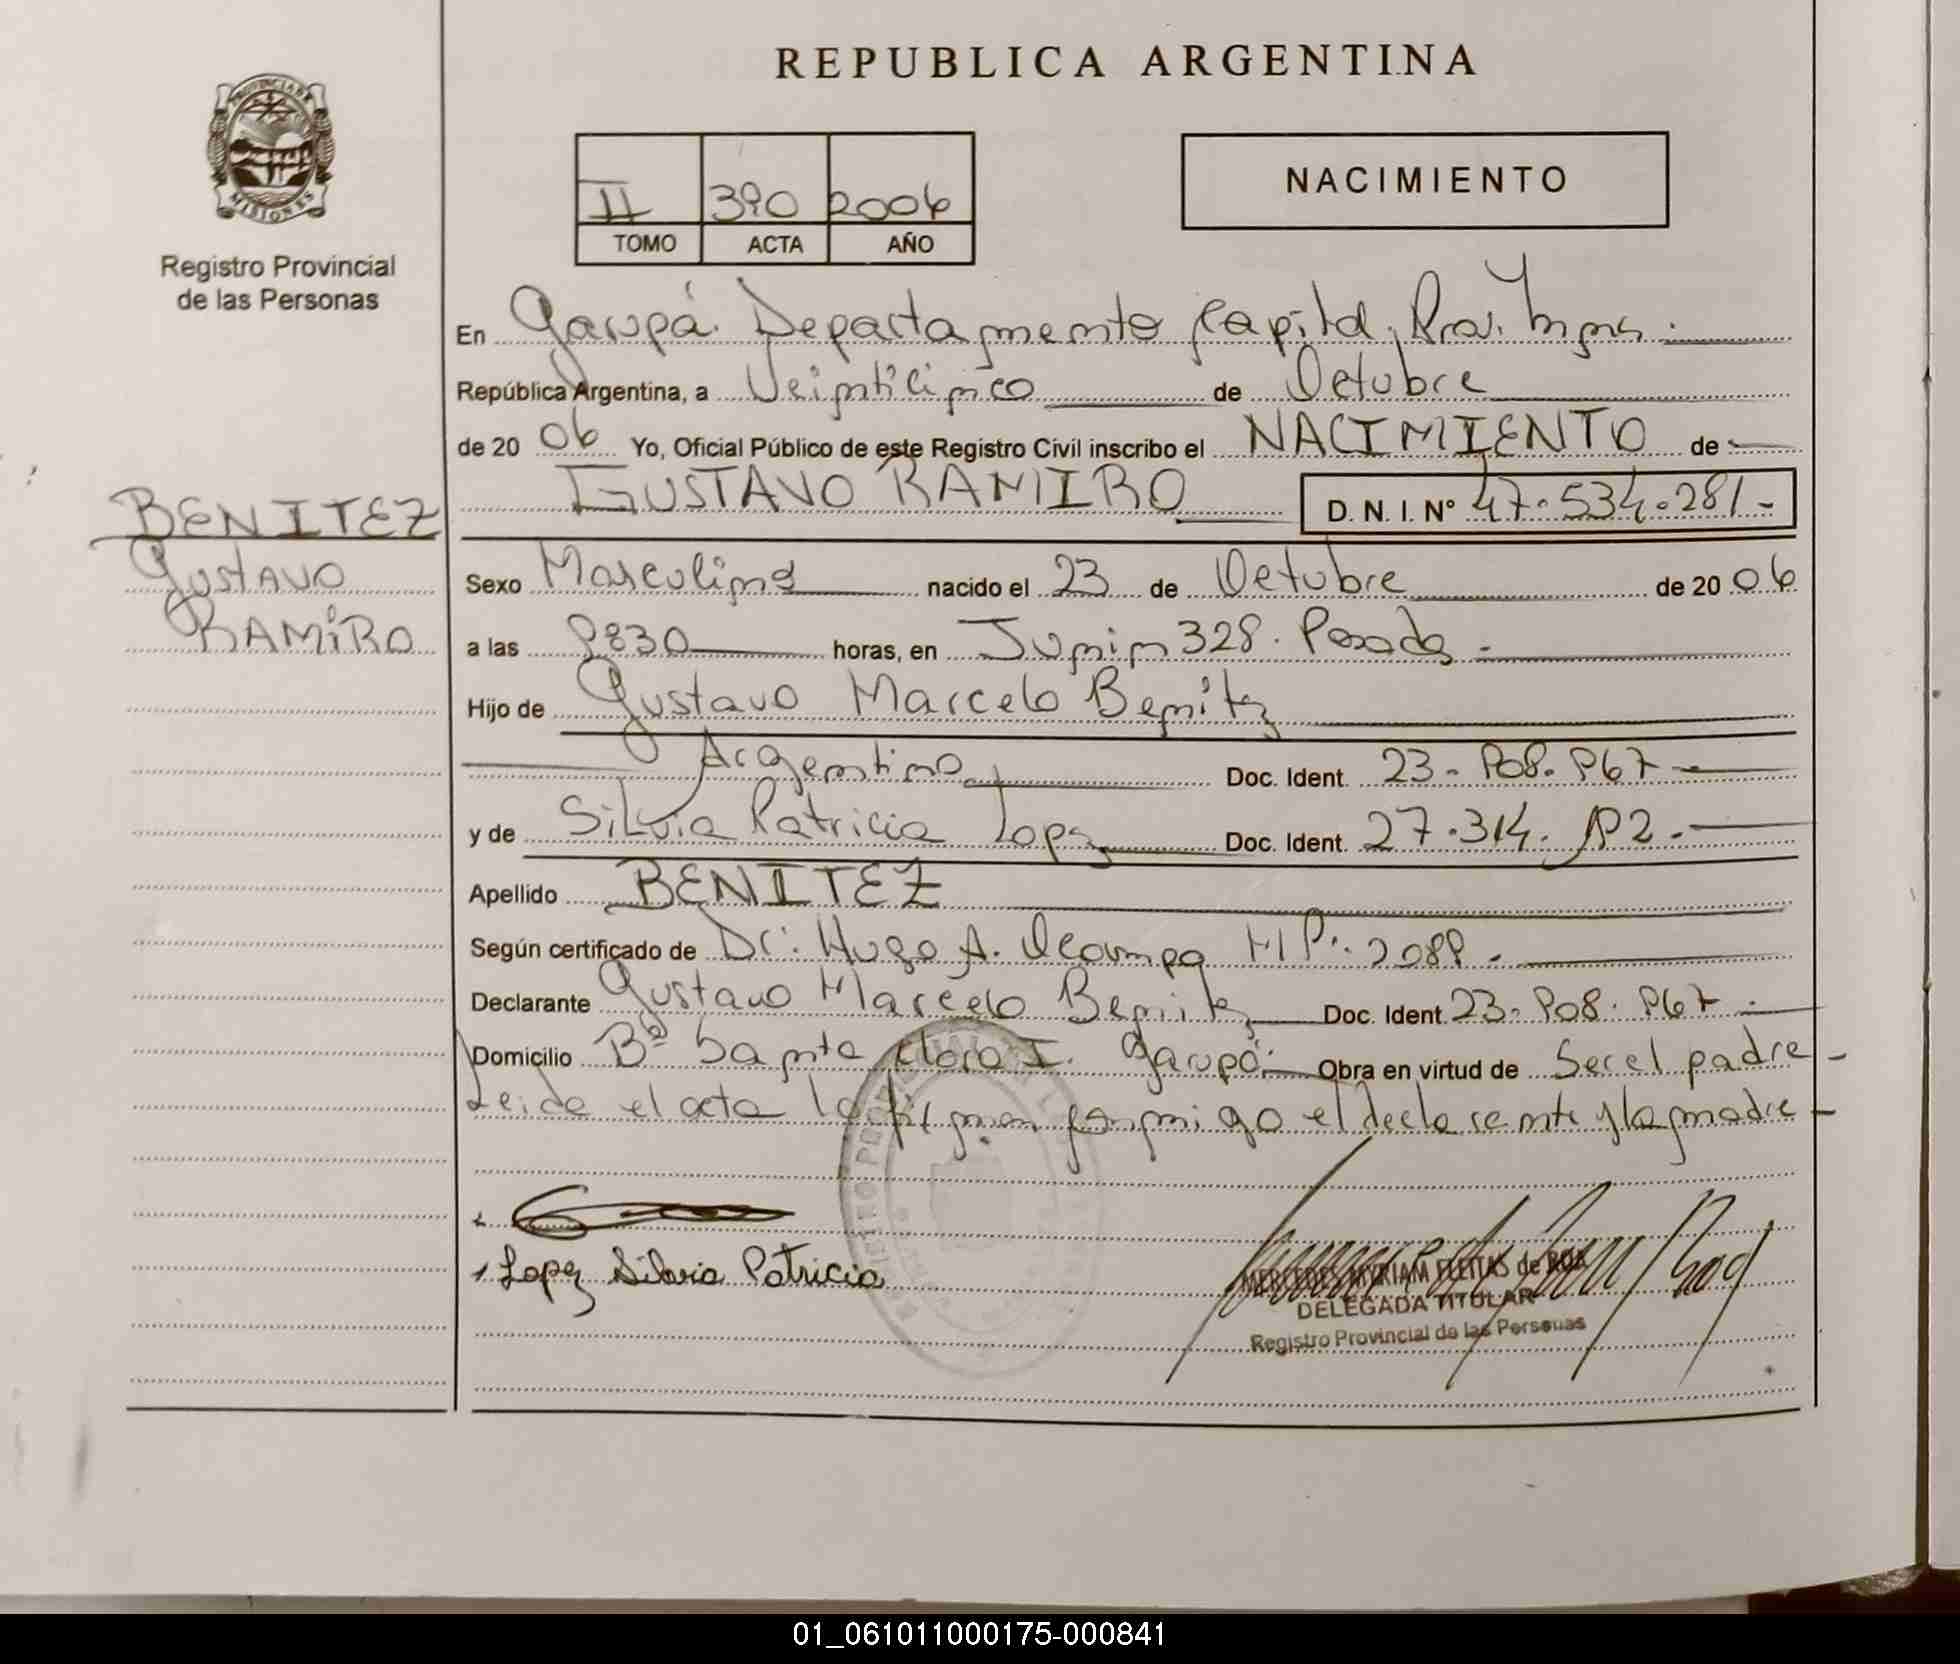 REPUBLICA ARGENTINA
PROVINCIA DE
MISIONES
Registro Provincial
de las Personas
NACIMIENTO
II 390 2006
TOMO ACTA AÑO
En Garupá. Departamento Capital. Prov. Mnes.
República Argentina, a Veinticinco de Octubre
de 20 06 Yo, Oficial Público de este Registro Civil inscribo el NACIMIENTO de
GUSTAVO RAMIRO D. N. I. N° 47.534.281.-
BENITEZ
GUSTAVO
RAMIRO
Sexo Masculino nacido el 23 de Octubre de 20 06
a las horas, en Junin 328. Posadas
Hijo de Gustavo Marcelo Benitez
Argentino Doc. Ident. 23.908.967
y de Silvia Patricia Lopez Doc. Ident. 27.314.
Apellido BENITEZ
Según certificado de Dr. Hugo A. Ocampo MP. 2089.
Declarante Gustavo Marcelo Benitez Doc. Ident. 23.908.967
Domicilio Bº Santa Clara I. Garupá. Obra en virtud de Ser el padre
Leida el acta la firman conmigo el declarante y la madre
Lopez Silvia Patricia
MERCEDES MYRIAM FLEITAS de ROA
DELEGADA TITULAR
Registro Provincial de las Personas
01_061011000175-000841